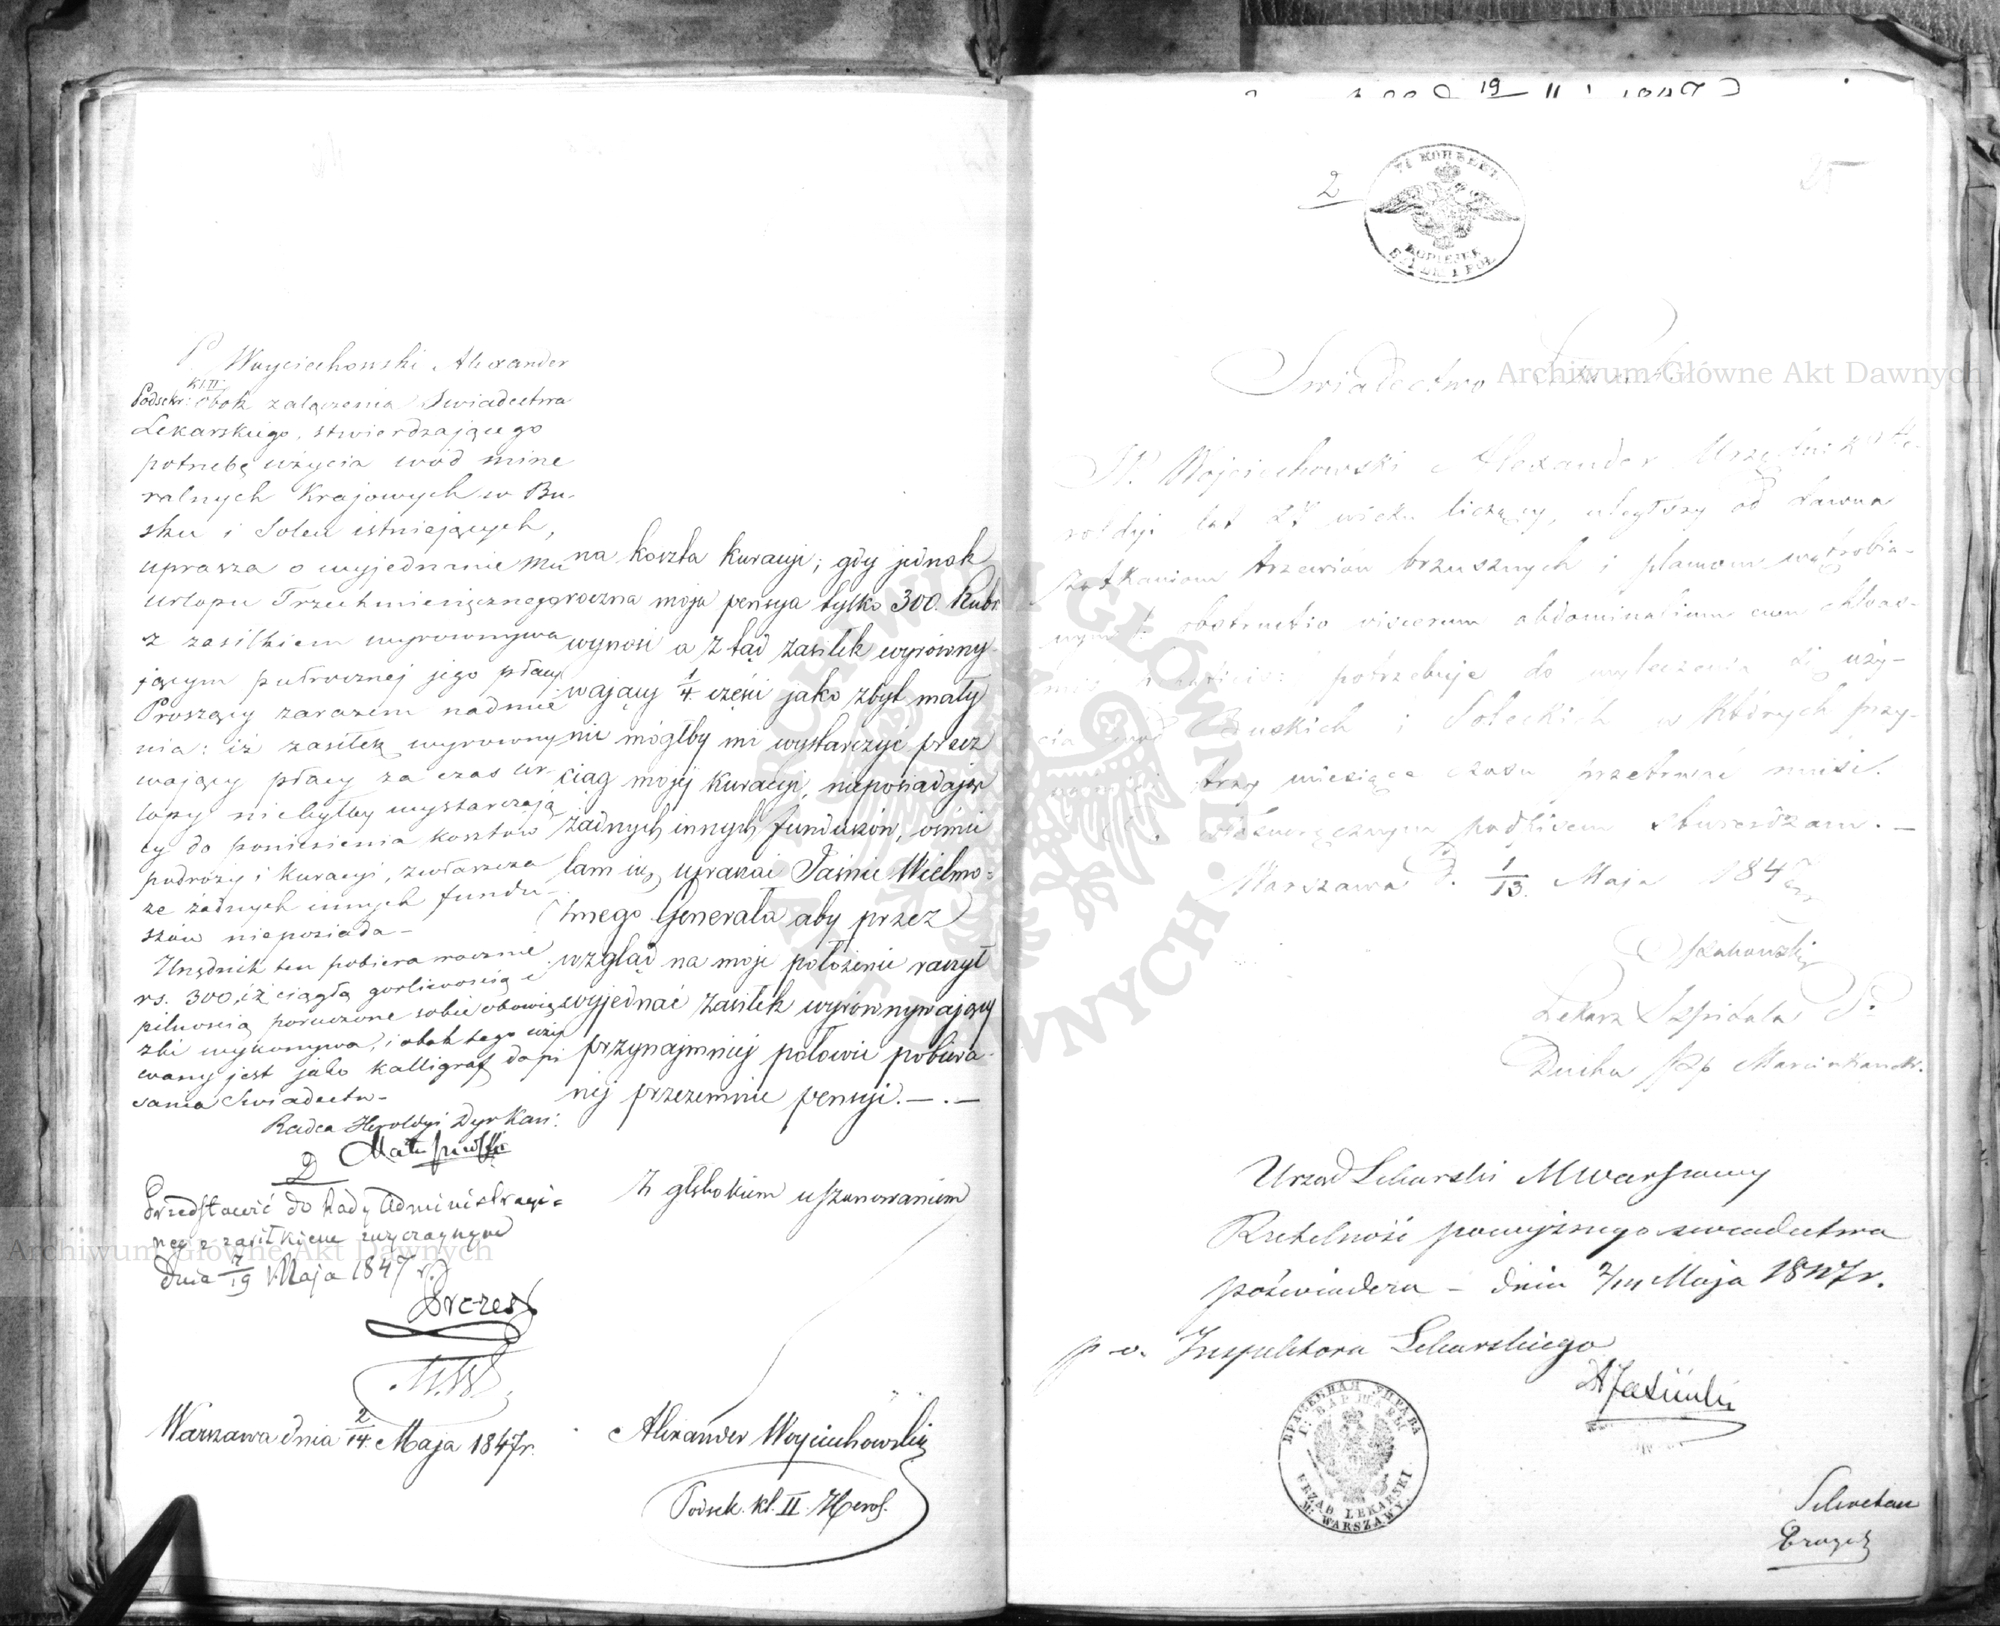 P. Woyciechowski Alexander
Podsekr: Kl. II. obok załączenia Swiadectwa
Lekarskiego, stwierdzającego
potrzebę użycia wód mine
ralnych Krajowych w Bu-
sku i Solcu istniejących,
uprasza o wyjednanie Mu
urlopu Trzechmiesięcznego
z zasiłkiem wyrownywa
jącym półrocznej jego płacy
Prosząey zarazem nadmie
nia: iż zasiłek wyrowny
wający płacy za czas ur
lopu niebyłby wystarczają
cy do poniesienia kosztów
podróży i Kuracyi, zwłaszcza
ze żadnych innych fundu-
szów nieposiada –
Urzędnik ten pobiera rocznie
rs. 300, iż ciągłą gorliwością i
pilnoscią poruczone sobie obowią
zki wykonywa, i obok tego uży
wany jest jako kalligraf do pi
sania Swiadectw –
Radca Heroldyi Dyr Kan:
D
Przedstawić do Rady Administracyi-
nej z zasiłkiem
Dnia 7/19 Maja 1847 r.
Warszawa dnia 2/14 Maja 1847 r.
na koszta Kuracyi; gdy jednak
roczna moja pensya tylko 300. Rubs
wynosi a z tąd zasiłek wyrówny-
wający 1/4 części jako zbyt mały
nie mógłby mi wystarczyć przez
ciąg mojéj Kuracyi, nieposiadając
żadnych innych funduszów, ośmie
lam się upraszać Jaśnie Wielmo-
żnego Generała aby przez
wzgląd na moje położenie raczył
wyjednać zasiłek wyrównywający
przynajmniéj połowie pobiera-
néj przezemnie pensyi. — . —
Z głębokiem uszanowaniem
Alexander Woyciechowski
Podsek. kl. II Herol.
2
КОПѢЕК
KOPIEJEK
25
Swiadectwo
JP. Wojciechowski Alexander Urzędnik He-
roldyi lat 27 wieku liczący, uległszy od dawna
zatkaniom trzewiów brzusznych i plamom wątrobia-
nym obstructio viscerum abdominalium cum chloas-
potrzebuje do wyleczenia się uży-
cia wód Buskich i Soleckich w których przy-
trzy miesiące czasu przetrwać musi.
własnoręcznym podpisem stwierdzam. —
Warszawa d. 1/13. Maja 1847
Lekarz Szpitala S°
Ducha PP Marcinkanek.
Urząd Lekarski M Warszawy
Rzetelność powyższego swiadectwa
poświadcza – dnia 2/14 Maja 1847 r.
p. o. Inspektora Lekarskiego
ВРАЧЕБНАЯ УПРАВА
Г: ВАРШАВЫ
URZĄD LEKARSKI
M: WARSZAWY.
Sekretarz
Archiwum Główne Akt Dawnych
Archiwum Główne Akt Dawnych
ARCHIWUM GŁÓWNE AKT DAWNYCH